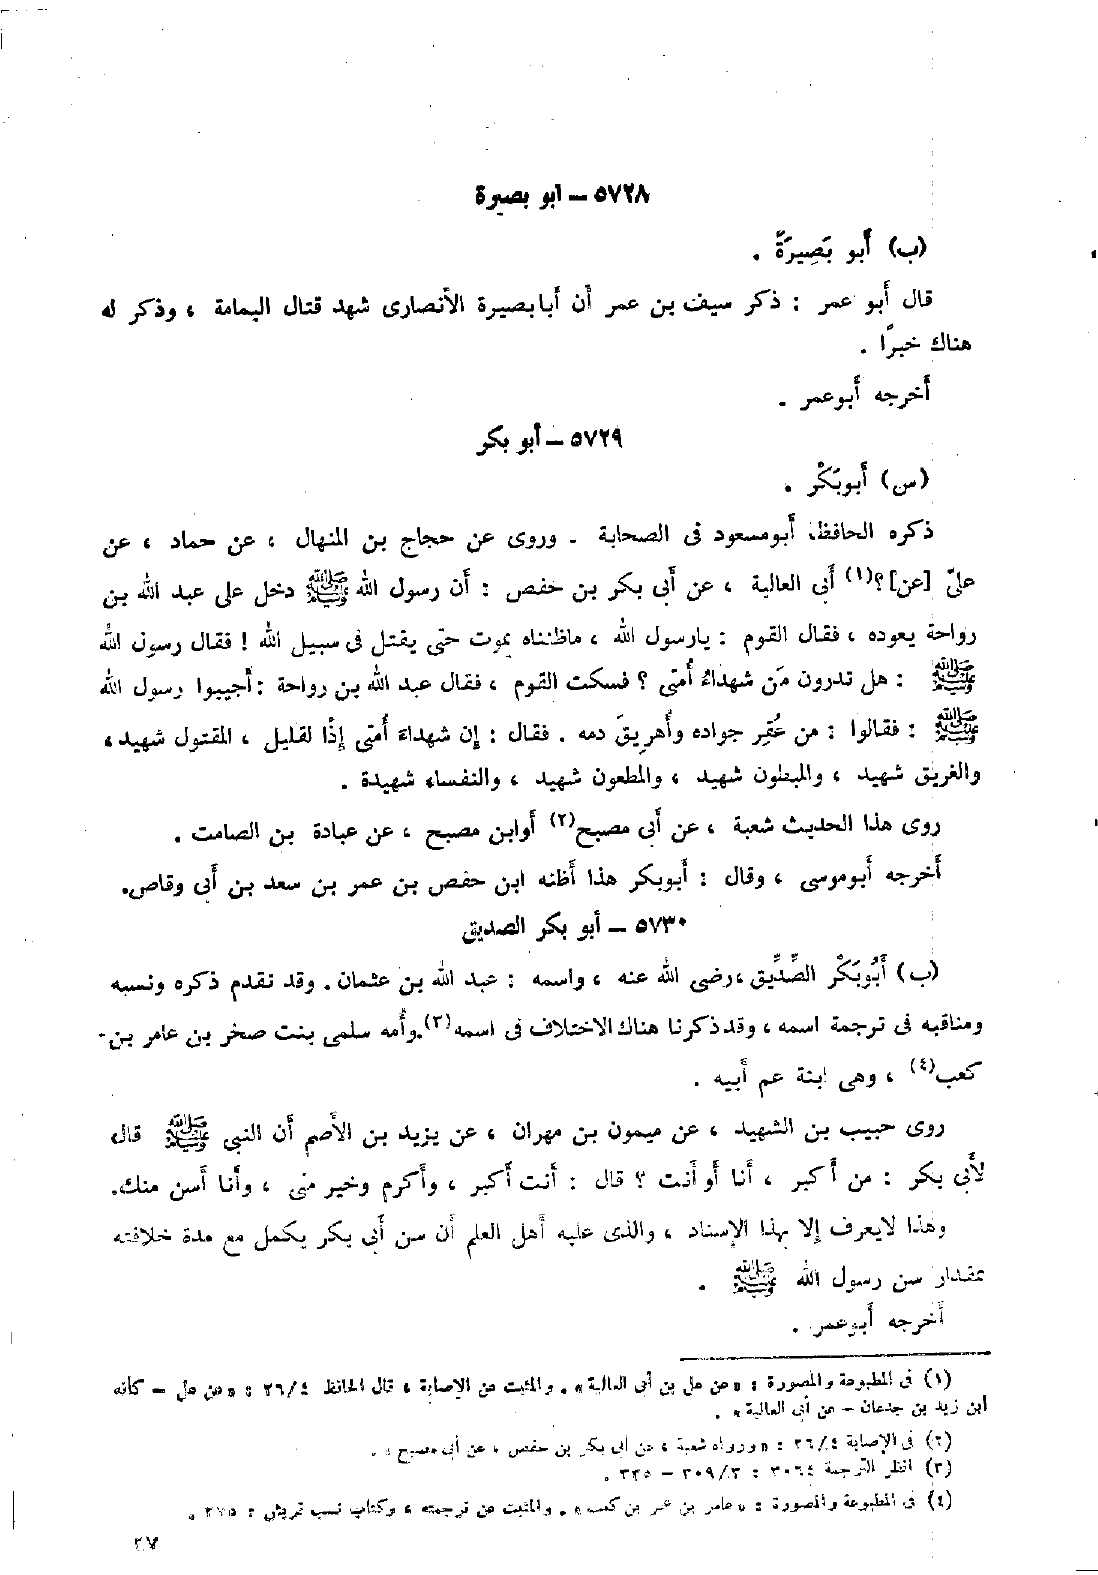 ٥٧٢٨ – ابو بصيرة
(ب) أَبو بَصِيرَةَ .
قال أَبو عمر : ذكر سيف بن عمر أَن أَبا بصيرة الأَنصارى شهد قتال اليمامة ، وذكر له
هناك خبرًا .
أَخرجه أَبو عمر .
٥٧٢٩ – أبو بكر
(س) أَبو بَكْر .
ذكره الحافظ أَبو مسعود فى الصحابة . وروى عن حجاج بن المنهال ، عن حماد ، عن
علىّ [عن]؟(١) أَبى العالية ، عن أَبى بكر بن حفص : أَن رسول الله ﷺ دخل على عبد الله بن
رواحة يعوده ، فقال القوم : يارسول الله ، ماظنناه يموت حتى يقتل فى سبيل الله ! فقال رسول الله
ﷺ : هل تدرون مَن شهداءُ أُمتى ؟ فسكت القوم ، فقال عبد الله بن رواحة : أَجيبوا رسول الله
ﷺ : فقالوا : من عُقِر جواده وأُهرِيقَ دمه . فقال : إِن شهداءَ أُمتى إِذًا لقليل ، المقتول شهيد ،
والغريق شهيد ، والمبطون شهيد ، والمطعون شهيد ، والنفساء شهيدة .
روى هذا الحديث شعبة ، عن أَبى مصبح(٢) أَوابن مصبح ، عن عبادة بن الصامت .
أَخرجه أَبوموسى ، وقال : أَبوبكر هذا أَظنه ابن حفص بن عمر بن سعد بن أَبى وقاص.
٥٧٣٠ – أبو بكر الصديق
(ب) أَبُوبَكْر الصِّدِّيق ، رضى الله عنه ، واسمه : عبد الله بن عثمان . وقد تقدم ذكره ونسبه
ومناقبه فى ترجمة اسمه ، وقد ذكرنا هناك الاختلاف فى اسمه(٣). وأُمه سلمى بنت صخر بن عامر بن
كعب(٤) ، وهى ابنة عم أَبيه .
روى حبيب بن الشهيد ، عن ميمون بن مهران ، عن يزيد بن الأَصم أَن النبى ﷺ قال
لأَبى بكر : من أَكبر ، أَنا أَو أَنت ؟ قال : أَنت أَكبر ، وأَكرم وخير منى ، وأَنا أَسن منك.
وهذا لايعرف إِلا بهذا الإِسناد ، والذى عليه أَهل العلم أَن سن أَبى بكر يكمل مع مدة خلافته
بمقدار سن رسول الله ﷺ .
أَخرجه أَبو عمر .
(١) فى المطبوعة والمصورة : « عن على بن أبى العالية » . والمثبت عن الإصابة ، قال الحافظ ٢٦/٤ : « عن على – كأنه
ابن زيد بن جدعان – عن أبى العالية » .
(٢) فى الإصابة ٢٦/٤ : « ورواه شعبة ، عن أبى بكر بن حفص ، عن أبى مصبح » .
(٣) انظر الترجمة ٣٠٦٤ : ٣٠٩/٣ – ٣٣٥ .
(٤) فى المطبوعة والمصورة : « عامر بن عمر بن كعب » . والمثبت عن ترجمته ، وكتاب نسب قريش : ٢٧٥ .
٣٧